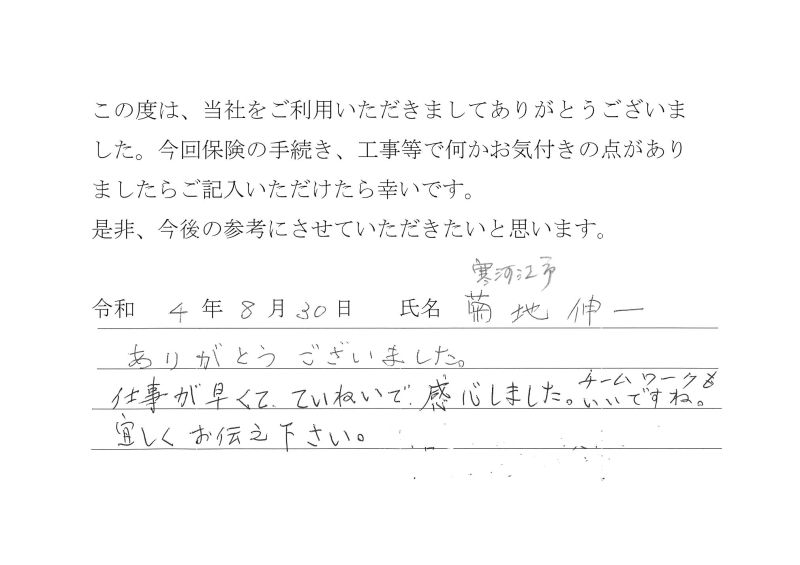 この度は、当社をご利用いただきましてありがとうございま
した。今回保険の手続き、工事等で何かお気付きの点があり
ましたらご記入いただけたら幸いです。
是非、今後の参考にさせていただきたいと思います。
寒河江市
令和 4 年 8 月 30 日 氏名 菊地 伸一
ありがとうございました。
仕事が早くて、ていねいで、感心しました。チームワークも
いいですね。
宜しくお伝え下さい。